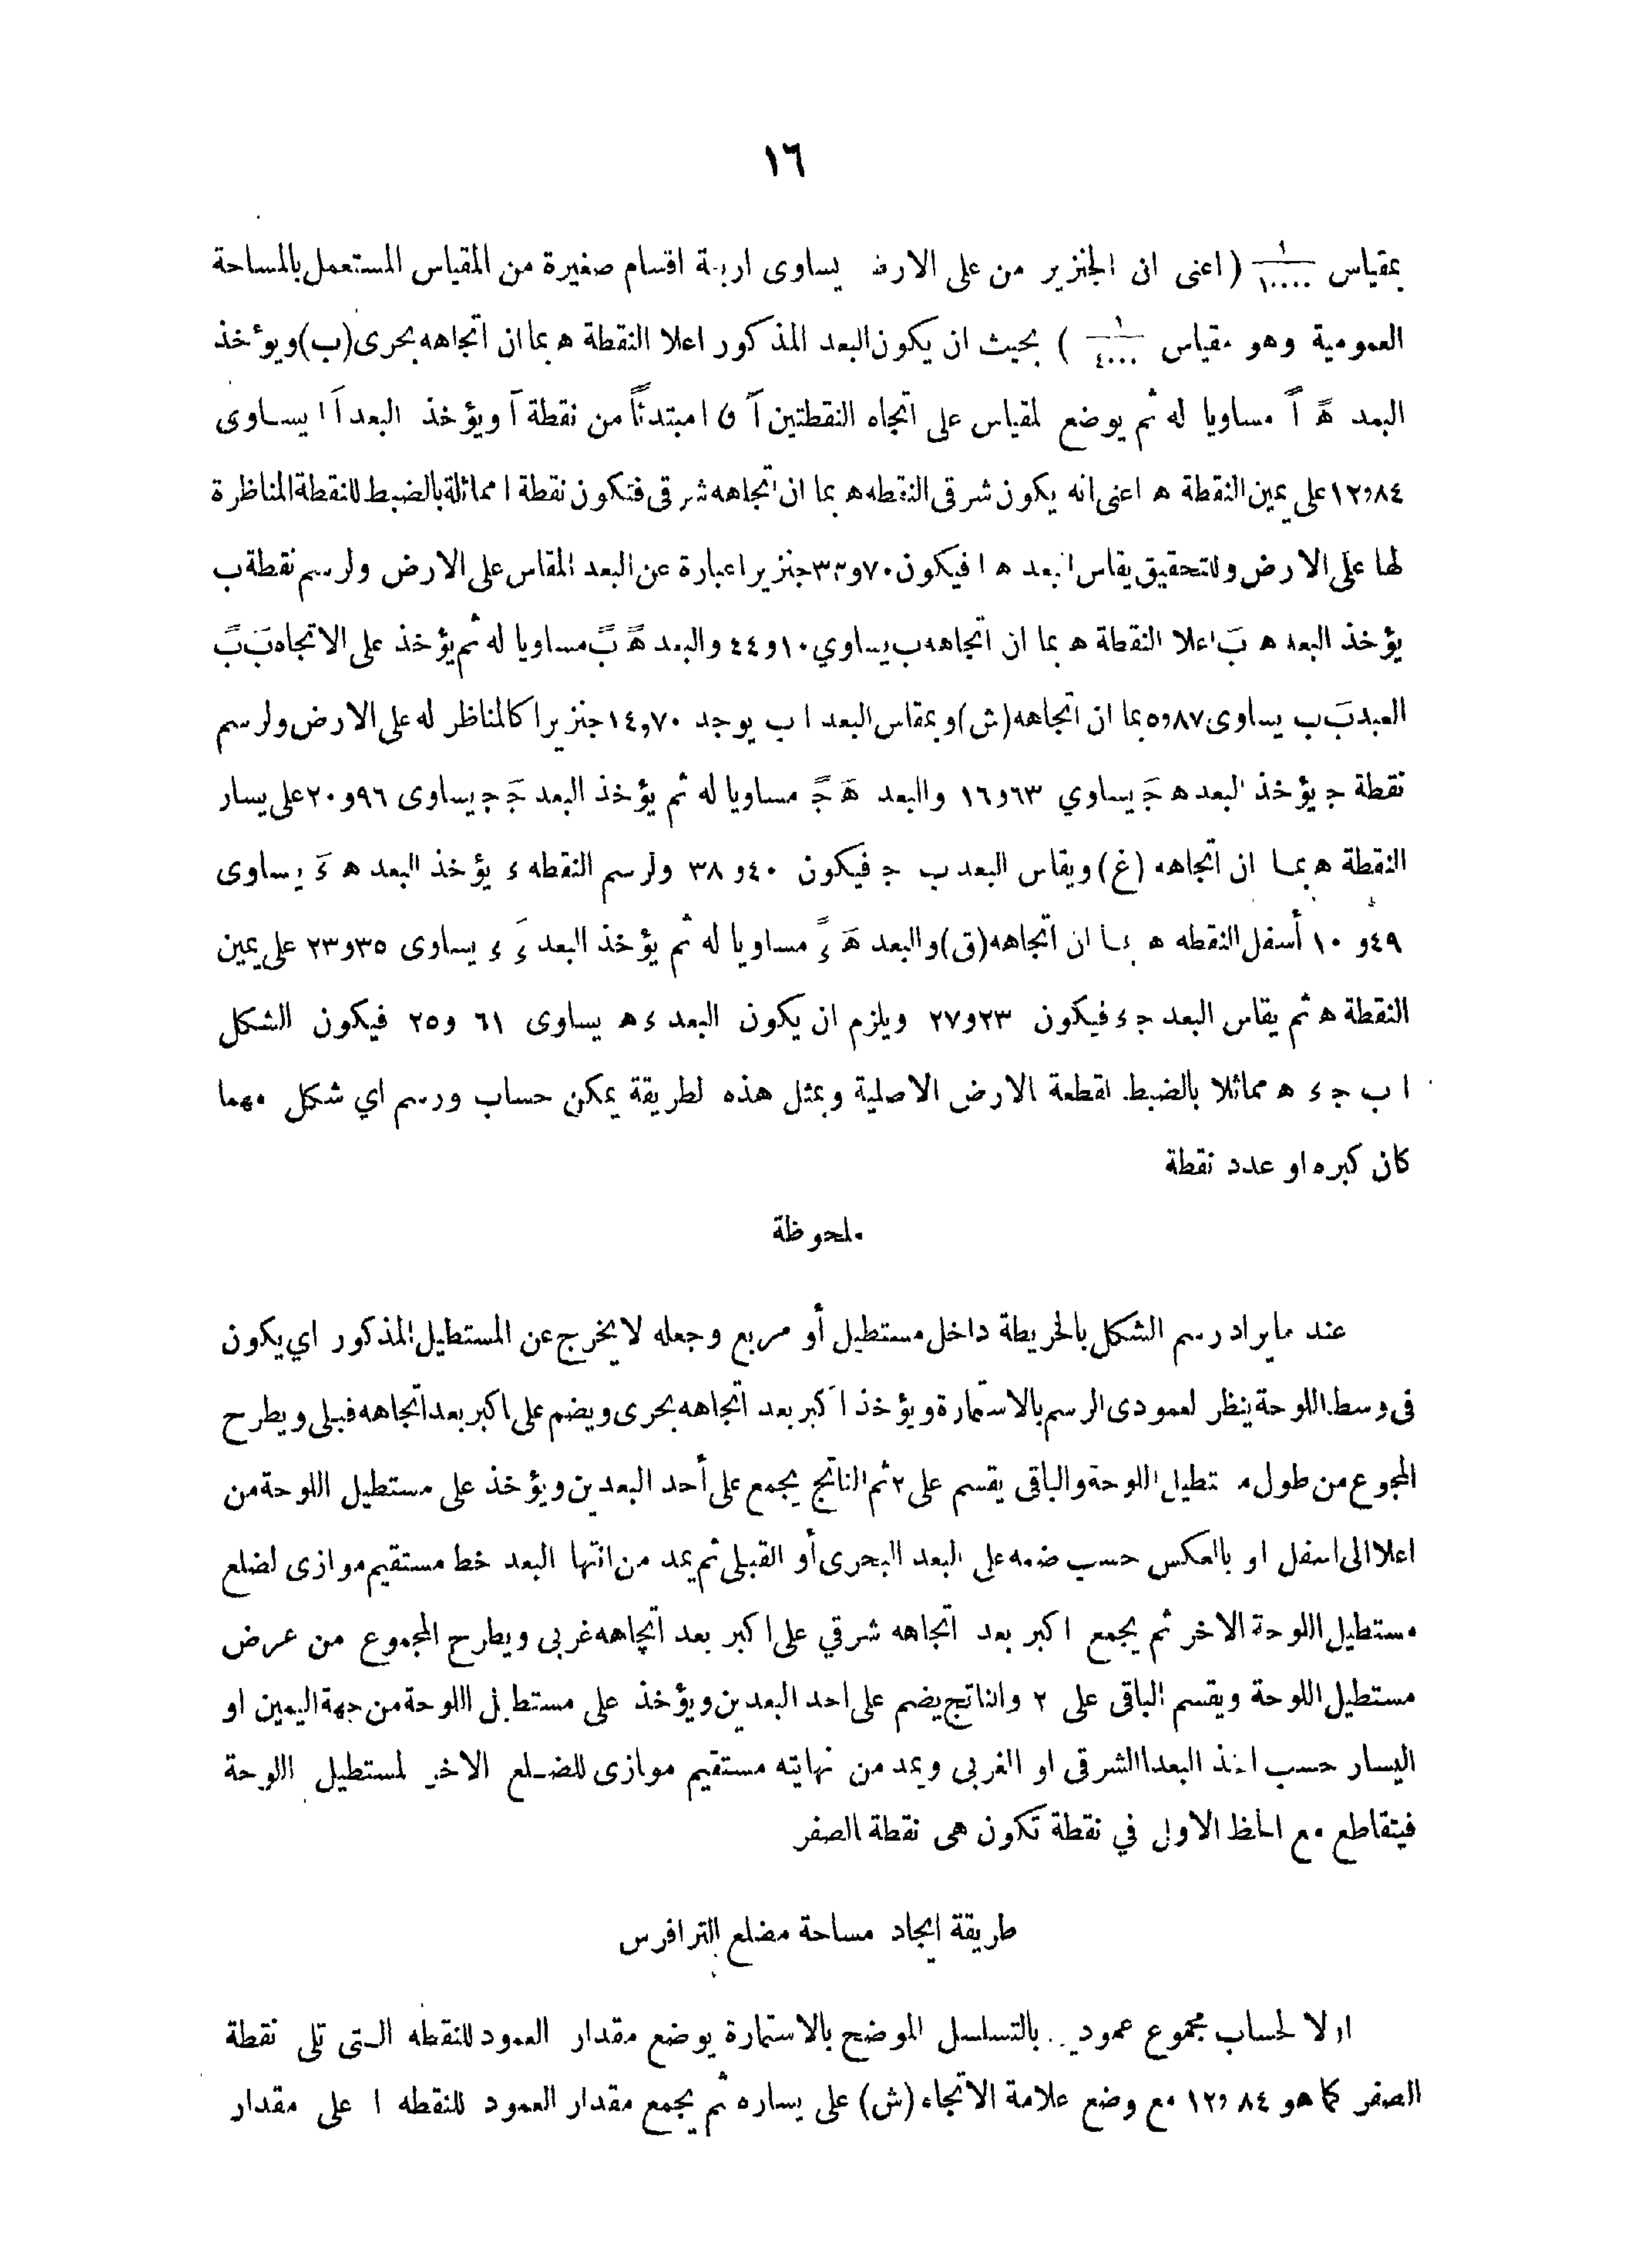 ١٦
بمقياس ١/١٠٠٠٠ (اعنى ان الجنزير من على الارض يساوى اربعة اقسام صغيرة من المقياس المستعمل بالمساحة
العمومية وهو مقياس ١/٤٠٠٠ ) بحيث ان يكون البعد المذكور اعلا النقطة ه بما ان اتجاهه بحرى (ب) ويؤخذ
البعد هً اً مساويا له ثم يوضع المقياس على اتجاه النقطتين آ ق ا مبتدئاً من نقطة آ ويؤخذ البعد اَ ا يساوى
١٢و٨٤ على يمين النقطة ه اعنى انه يكون شرقى النقطه ه بما ان اتجاهه شرقى فتكون نقطة ا مماثلة بالضبط للنقطة المناظرة
لها على الارض وللتحقيق يقاس البعد ه ا فيكون ٣٣و٧٠ جنزيرا عبارة عن البعد المقاس على الارض ولرسم نقطة ب
يؤخذ البعد ه بَ اعلا النقطة ه بما ان اتجاهه ب يساوي ٤٤و١٠ والبعد هً بً مساويا له ثم يؤخذ على الاتجاه بَ بً
العبد بَ ب يساوى ٥و٨٧ بما ان اتجاهه (ش) و بمقاس البعد ا ب يوجد ١٤,٧٠ جنزيرا كالمناظر له على الارض ولرسم
نقطة ج يؤخذ البعد ه جَ يساوي ١٦و٦٣ والبعد هَ جً مساويا له ثم يؤخذ البعد جَ ج يساوى ٢٠و٩٦ على يسار
النقطة ه بما ان اتجاهه (غ) ويقاس البعد ب ج فيكون ٣٨و٤٠ ولرسم النقطه ء يؤخذ البعد ه ءَ يساوى
١٠و٤٩ أسفل النقطه ه بما ان اتجاهه (ق) والبعد هَ ءً مساويا له ثم يؤخذ البعد ءَ ء يساوى ٢٣و٣٥ على يمين
النقطة ه ثم يقاس البعد ج ء فيكون ٢٧و٢٣ ويلزم ان يكون البعد ء ه يساوى ٢٥و٦١ فيكون الشكل
ا ب ج ء ه مماثلا بالضبط لقطعة الارض الاصلية وبمثل هذه لطريقة يمكن حساب ورسم اي شكل مهما
كان كبره او عدد نقطة
ملحوظة
عند ما يراد رسم الشكل بالخريطة داخل مستطيل أو مربع وجعله لا يخرج عن المستطيل المذكور اي يكون
فى وسط اللوحة ينظر لعمودى الرسم بالاستمارة ويؤخذ اكبر بعد اتجاهه بحرى ويضم على اكبر بعد اتجاهه قبلى ويطرح
المجموع من طول مستطيل اللوحة والباقى يقسم على ٢ ثم الناتج يجمع على أحد البعدين ويؤخذ على مستطيل اللوحة من
اعلا الى اسفل او بالعكس حسب ضمه على البعد البحرى أو القبلى ثم يمد من انتها البعد خط مستقيم موازى لضلع
مستطيل اللوحة الاخر ثم يجمع اكبر بعد اتجاهه شرقي على اكبر بعد اتجاهه غربى ويطرح المجموع من عرض
مستطيل اللوحة ويقسم الباقى على ٢ والناتج يضم على احد البعدين ويؤخذ على مستطيل اللوحة من جهة اليمين او
اليسار حسب اخذ البعد الشرقى او الغربى ويمد من نهايته مستقيم موازى للضلع الاخر لمستطيل اللوحة
فيتقاطع مع الخط الاول في نقطة تكون هى نقطة الصفر
طريقة ايجاد مساحة مضلع الترافرس
اولا لحساب مجموع عمود بالتسلسل الموضح بالاستمارة يوضع مقدار العمود للنقطه التى تلى نقطة
الصفر كما هو ١٢و٨٤ مع وضع علامة الاتجاه (ش) على يساره ثم يجمع مقدار العمود للنقطه ا على مقدار